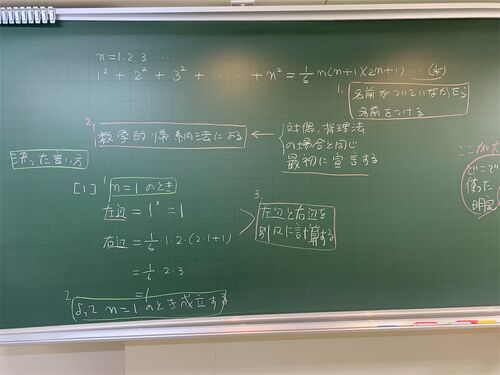 n=1.2.3 ...
1² + 2² + 3² + ・・・・ + n² = 1/6 n(n+1)(2n+1) ... (*)
1.
名前がついていなかったら
名前をつける
2.
数学的帰納法による
←
対偶, 背理法
の場合と同じ
最初に宣言する
決った言い方
[1]
1
n=1のとき
左辺 = 1² = 1
右辺 = 1/6・1・2・(2・1+1)
= 1/6・2・3
= 1
3.
左辺と右辺を
別々に計算する
2
よって n=1のとき成立する
ここが大
どこで
使った
明記